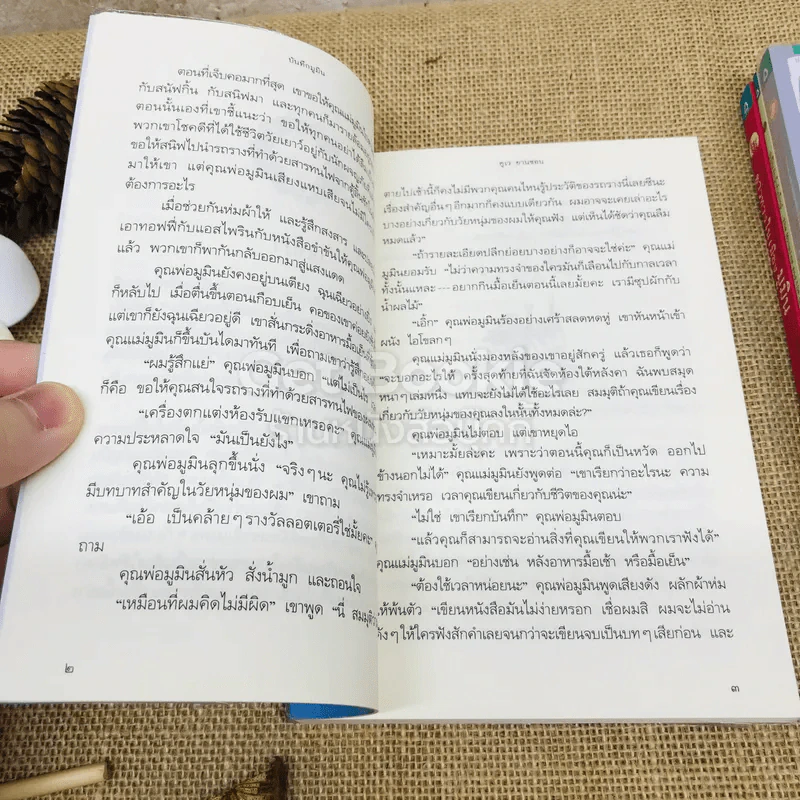 บันทึกมูมิน
ตอนที่เจ็บคอมากที่สุด เขาขอให้คุณแม่มูมิน
กับสนัฟกิ้น กับสนิฟมา และทุกคนก็มาราย
ตอนนั้นเองที่เขาชี้แนะว่า ขอให้ทุกคนอย่าได้
พวกเขาโชคดีที่ได้ใช้ชีวิตวัยเยาว์อยู่กับนัก
ขอให้สนิฟไปนำรถรางที่ทำด้วยสารทนไฟจาก
มาให้เขา แต่คุณพ่อมูมินเสียงแหบเสียจน
ต้องการอะไร
เมื่อช่วยกันห่มผ้าให้ และรู้สึกสงสาร และ
เอาทอฟฟี่กับแอสไพรินกับหนังสือขำขันให้คุณพ่อ
แล้ว พวกเขาก็พากันกลับออกมาสู่แสงแดด
คุณพ่อมูมินยังคงอยู่บนเตียง ฉุนเฉียวอย่าง
ก็หลับไป เมื่อตื่นขึ้นตอนเกือบเย็น คอของเขาค่อย
แต่เขาก็ยังฉุนเฉียวอยู่ดี เขาสั่นกระดิ่งอาหารมื้อเย็น
คุณแม่มูมินก็ขึ้นบันไดมาทันที เพื่อถามเขาว่ารู้สึก
“ผมรู้สึกแย่” คุณพ่อมูมินบอก “แต่ไม่เป็นไร
ก็คือ ขอให้คุณสนใจรถรางที่ทำด้วยสารทนไฟของ
“เครื่องตกแต่งห้องรับแขกเหรอคะ” คุณแม่
ความประหลาดใจ “มันเป็นยังไง”
คุณพ่อมูมินลุกขึ้นนั่ง “จริงๆนะ คุณไม่รู้
มีบทบาทสำคัญในวัยหนุ่มของผม” เขาถาม
“เอ้อ เป็นคล้ายๆรางวัลลอตเตอรี่ใช่มั้ยคะ”
ถาม
คุณพ่อมูมินสั่นหัว สั่งน้ำมูก และถอนใจ
“เหมือนที่ผมคิดไม่มีผิด” เขาพูด “นี่ สมมุติว่า
๒
ตูเว ยานซอน
ตายไปเช้านี้ก็คงไม่มีพวกคุณคนไหนรู้ประวัติของรถรางนี่เลยซีนะ
เรื่องสำคัญอื่นๆ อีกมากก็คงแบบเดียวกัน ผมอาจจะเคยเล่าอะไร
บางอย่างเกี่ยวกับวัยหนุ่มของผมให้คุณฟัง แต่เห็นได้ชัดว่าคุณลืม
หมดแล้ว”
“ถ้ารายละเอียดปลีกย่อยบางอย่างก็อาจจะใช่ค่ะ” คุณแม่
มูมินยอมรับ “ไม่ว่าความทรงจำของใครมันก็เลือนไปตามกาลเวลา
ทั้งนั้นแหละ --- อยากกินมื้อเย็นตอนนี้เลยมั้ยคะ เรามีซุปผักกับ
น้ำผลไม้”
“เอิ๊ก” คุณพ่อมูมินร้องอย่างเศร้าสลดหดหู่ เขาหันหน้าเข้า
ผนัง ไอโขลกๆ
คุณแม่มูมินนั่งมองหลังของเขาอยู่สักครู่ แล้วเธอก็พูดว่า
“จะบอกอะไรให้ ครั้งสุดท้ายที่ฉันจัดห้องใต้หลังคา ฉันพบสมุด
หนาๆเล่มหนึ่ง แทบจะยังไม่ได้ใช้อะไรเลย สมมุติถ้าคุณเขียนเรื่อง
เกี่ยวกับวัยหนุ่มของคุณลงในนั้นทั้งหมดล่ะ?”
คุณพ่อมูมินไม่ตอบ แต่เขาหยุดไอ
“เหมาะมั้ยล่ะคะ เพราะว่าตอนนี้คุณก็เป็นหวัด ออกไป
ข้างนอกไม่ได้” คุณแม่มูมินยังพูดต่อ “เขาเรียกว่าอะไรนะ ความ
ทรงจำเหรอ เวลาคุณเขียนเกี่ยวกับชีวิตของคุณน่ะ”
“ไม่ใช่ เขาเรียกบันทึก” คุณพ่อมูมินตอบ
“แล้วคุณก็สามารถจะอ่านสิ่งที่คุณเขียนให้พวกเราฟังได้”
คุณแม่มูมินบอก “อย่างเช่น หลังอาหารมื้อเช้า หรือมื้อเย็น”
“ต้องใช้เวลาหน่อยนะ” คุณพ่อมูมินพูดเสียงดัง ผลักผ้าห่ม
ให้พ้นตัว “เขียนหนังสือมันไม่ง่ายหรอก เชื่อผมสิ ผมจะไม่อ่าน
ดังๆให้ใครฟังสักคำเลยจนกว่าจะเขียนจบเป็นบทๆเสียก่อน และ
๓